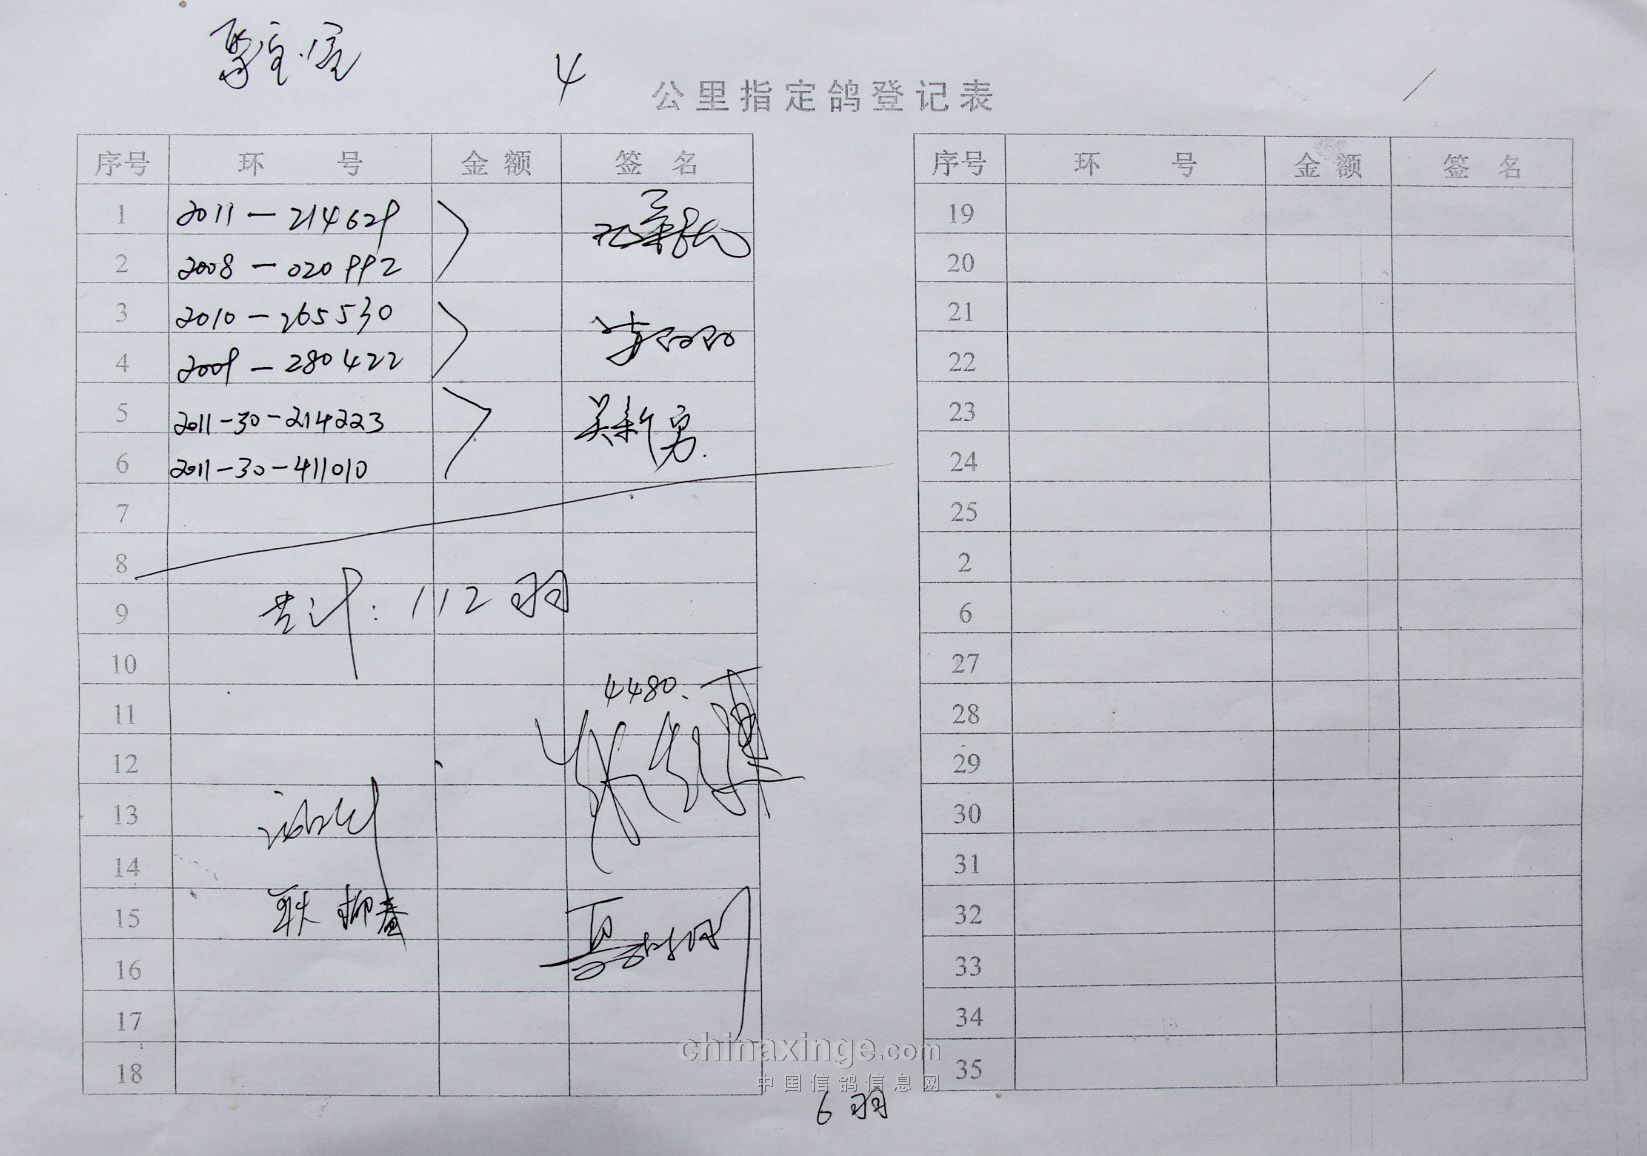 4 公里指定鸽登记表
序号 环 号 金额 签 名
1 2011-214629
2 2008-020992
3 2010-265530
4 2009-280422
5 2011-30-214223 吴新勇
6 2011-30-411010
7
8
9 共计: 112羽
10
4480.
11
12
13
14
15 耿柳春
16
17
18
序号 环 号 金额 签 名
19
20
21
22
23
24
25
2
6
27
28
29
30
31
32
33
34
35
chinaxinge.com
中国信鸽信息网
6羽